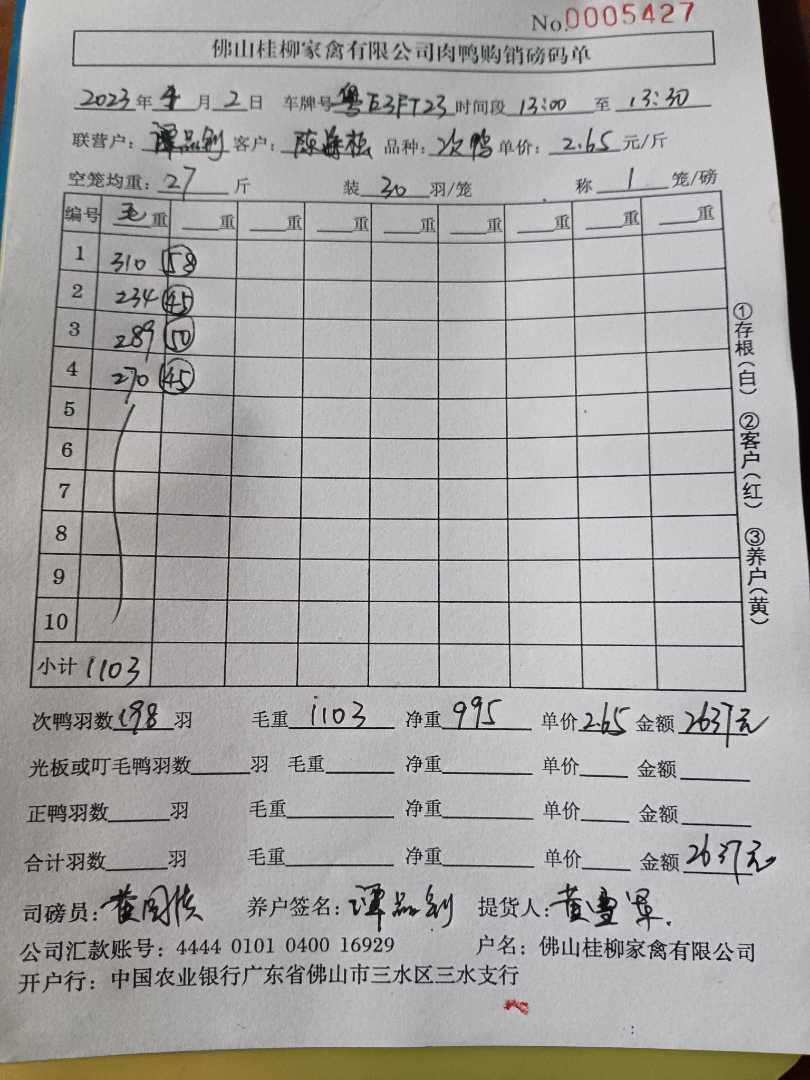 No.0005427
佛山桂柳家禽有限公司肉鸭购销磅码单
2023年4月2日 车牌号粤E3FT23时间段13:00至13:30
联营户:谭品钊 客户:陈 品种:次鸭 单价:2.65元/斤
空笼均重:27斤 装30羽/笼 称1笼/磅
编号 毛重 重 重 重 重 重 重 重 重
1 310 58
2 234 45
3 289 50
4 270 45
5
6
7
8
9
10
小计 1103
次鸭羽数198羽 毛重1103 净重995 单价2.65 金额2637元
光板或叮毛鸭羽数 羽 毛重 净重 单价 金额
正鸭羽数 羽 毛重 净重 单价 金额
合计羽数 羽 毛重 净重 单价 金额2637元
司磅员:黄 养户签名:谭品钊 提货人:黄雪军.
公司汇款账号:4444 0101 0400 16929 户名:佛山桂柳家禽有限公司
开户行:中国农业银行广东省佛山市三水区三水支行
①存根(白) ②客户(红) ③养户(黄)